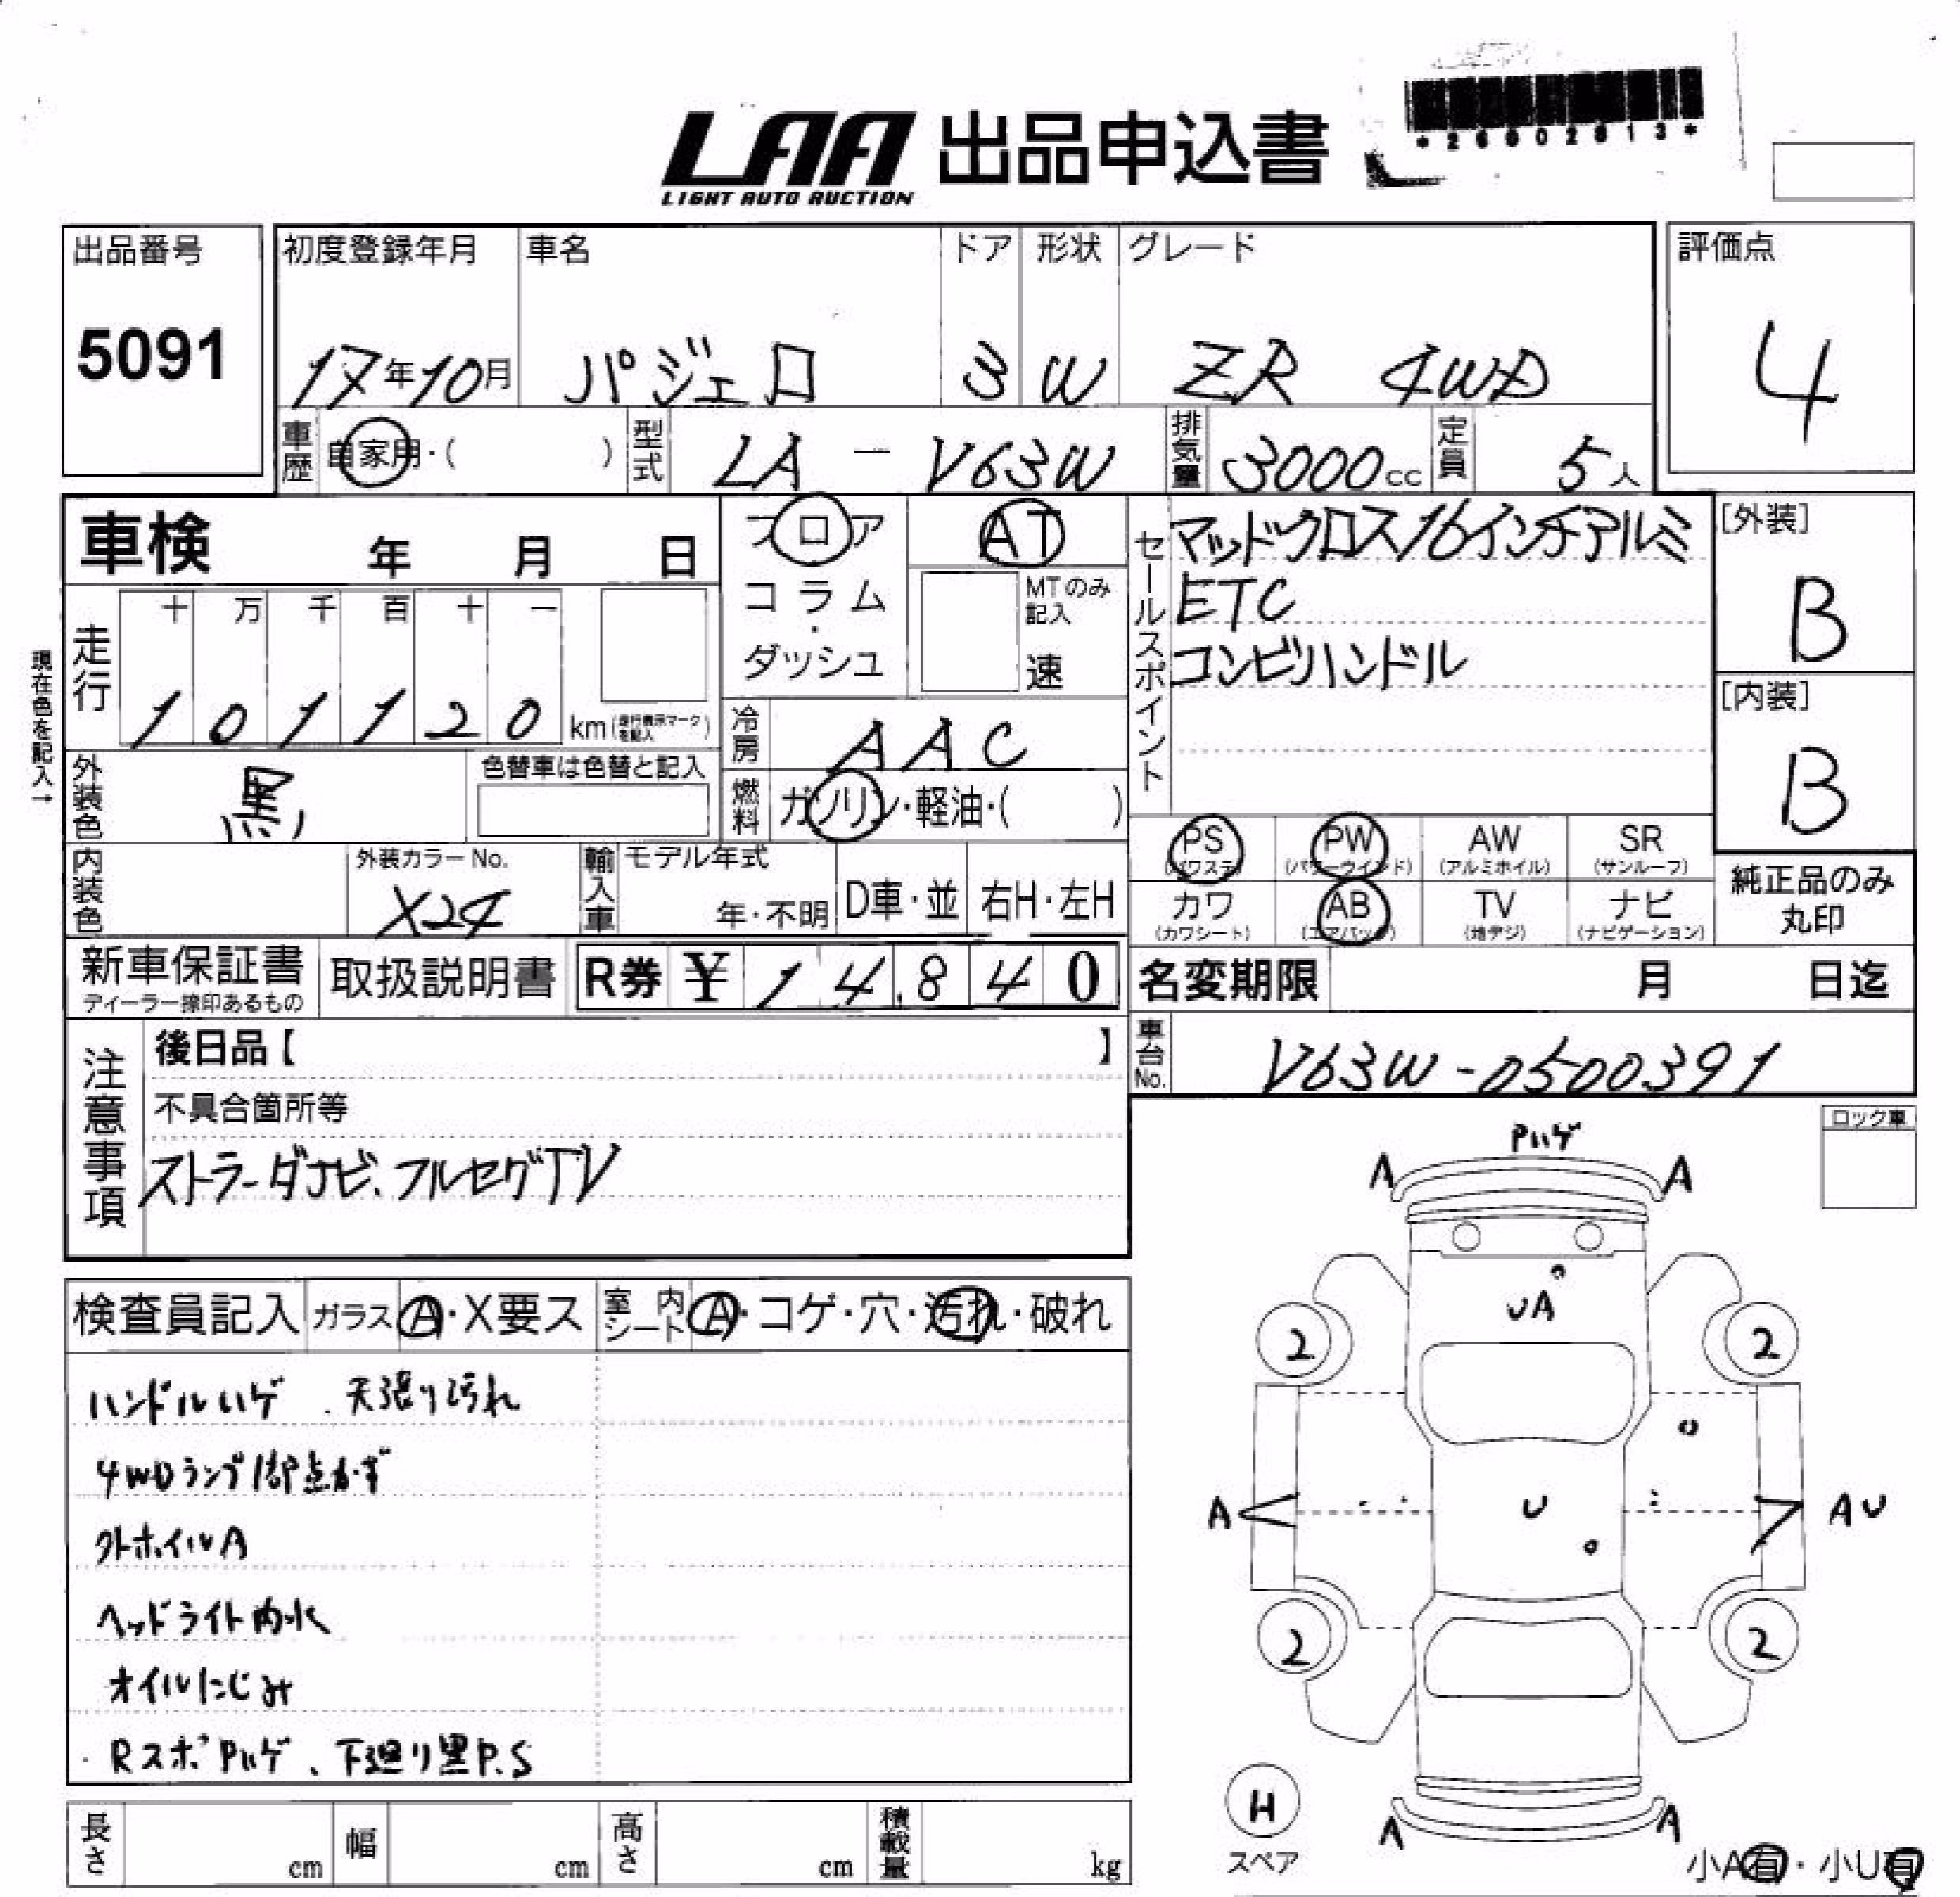 LAA 出品申込書
LIGHT AUTO AUCTION
*26902813*
出品番号
5091
初度登録年月 車名 ドア 形状 グレード
17年10月 パジェロ 3 W ZR 4WD
評価点
4
車歴 自家用・( ) 型式 LA-V63W 排気量 3000cc 定員 5人
車検 年 月 日
フロア
コラム
・
ダッシュ
AT
MTのみ
記入
速
セールスポイント
マッドクロス16インチアルミ
ETC
コンビハンドル
[外装]
B
[内装]
B
現在色を記入→
走行
十 万 千 百 十 一
1 0 1 1 2 0 km(走行表示マークを記入)
冷房 AAC
外装色 黒 色替車は色替と記入
燃料 ガソリン・軽油・( )
PS AW SR
(パワステ) (アルミホイル) (サンルーフ)
PW
(パワーウインド)
カワ AB TV ナビ
(カワシート) (エアバッグ) (地デジ) (ナビゲーション)
純正品のみ
丸印
内装色 外装カラーNo.
X24
輸入車 モデル年式
年・不明 D車・並 右H・左H
新車保証書
ディーラー捺印あるもの
取扱説明書 R券 ¥ 14,840
名変期限 月 日迄
車台No. V63W-0500391
注意事項
後日品【 】
不具合箇所等
ストラーダナビ、フルセグTV
ロック車
Pハゲ
A A
UA
2 2
A U AU
2 2
H
スペア
A A
小A有・小U有
検査員記入 ガラス A・X要ス 室内シート A・コゲ・穴・汚れ・破れ
ハンドルハゲ、天張り汚れ
4WDランプ1部点かず
外ホイルA
ヘッドライト内水
オイルにじみ
RスポPハゲ、下廻り黒P.S
長さ cm 幅 cm 高さ cm 積載量 kg